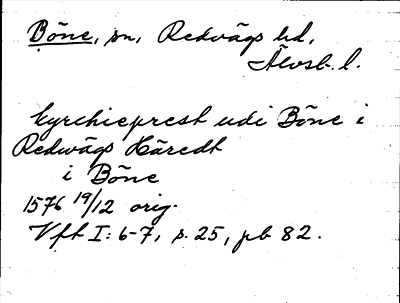 Böne, sn, Redvägs hd,
Älvsb. l.
Kyrchieprest udi Böne i
Redwägs Häredt
i Böne
1576 19/12 orig.
Vft I: 6-7, s. 25, pb 82.